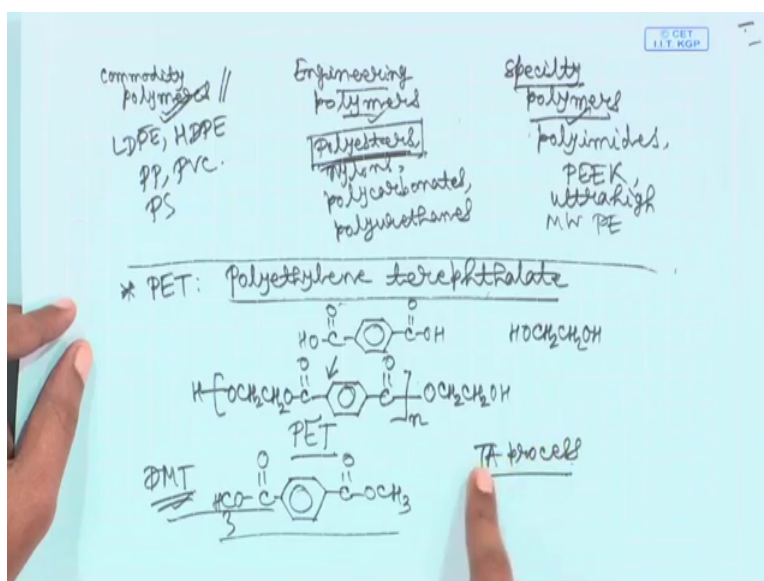 © CET
I.I.T. KGP
commodity
polymers
LDPE, HDPE
PP, PVC.
PS
Engineering
polymers
Polyesters,
nylons,
polycarbonates,
polyurethanes
Specilty
polymers
polyimides,
PEEK,
ultrahigh
MW PE
* PET: Polyethylene terephthalate
O O
HO-C-C-OH HOCH2CH2OH
O O
H-[OCH2CH2O-C-C-]n-OCH2CH2OH
PET
TA process
DMT
O O
H3CO-C-C-OCH3